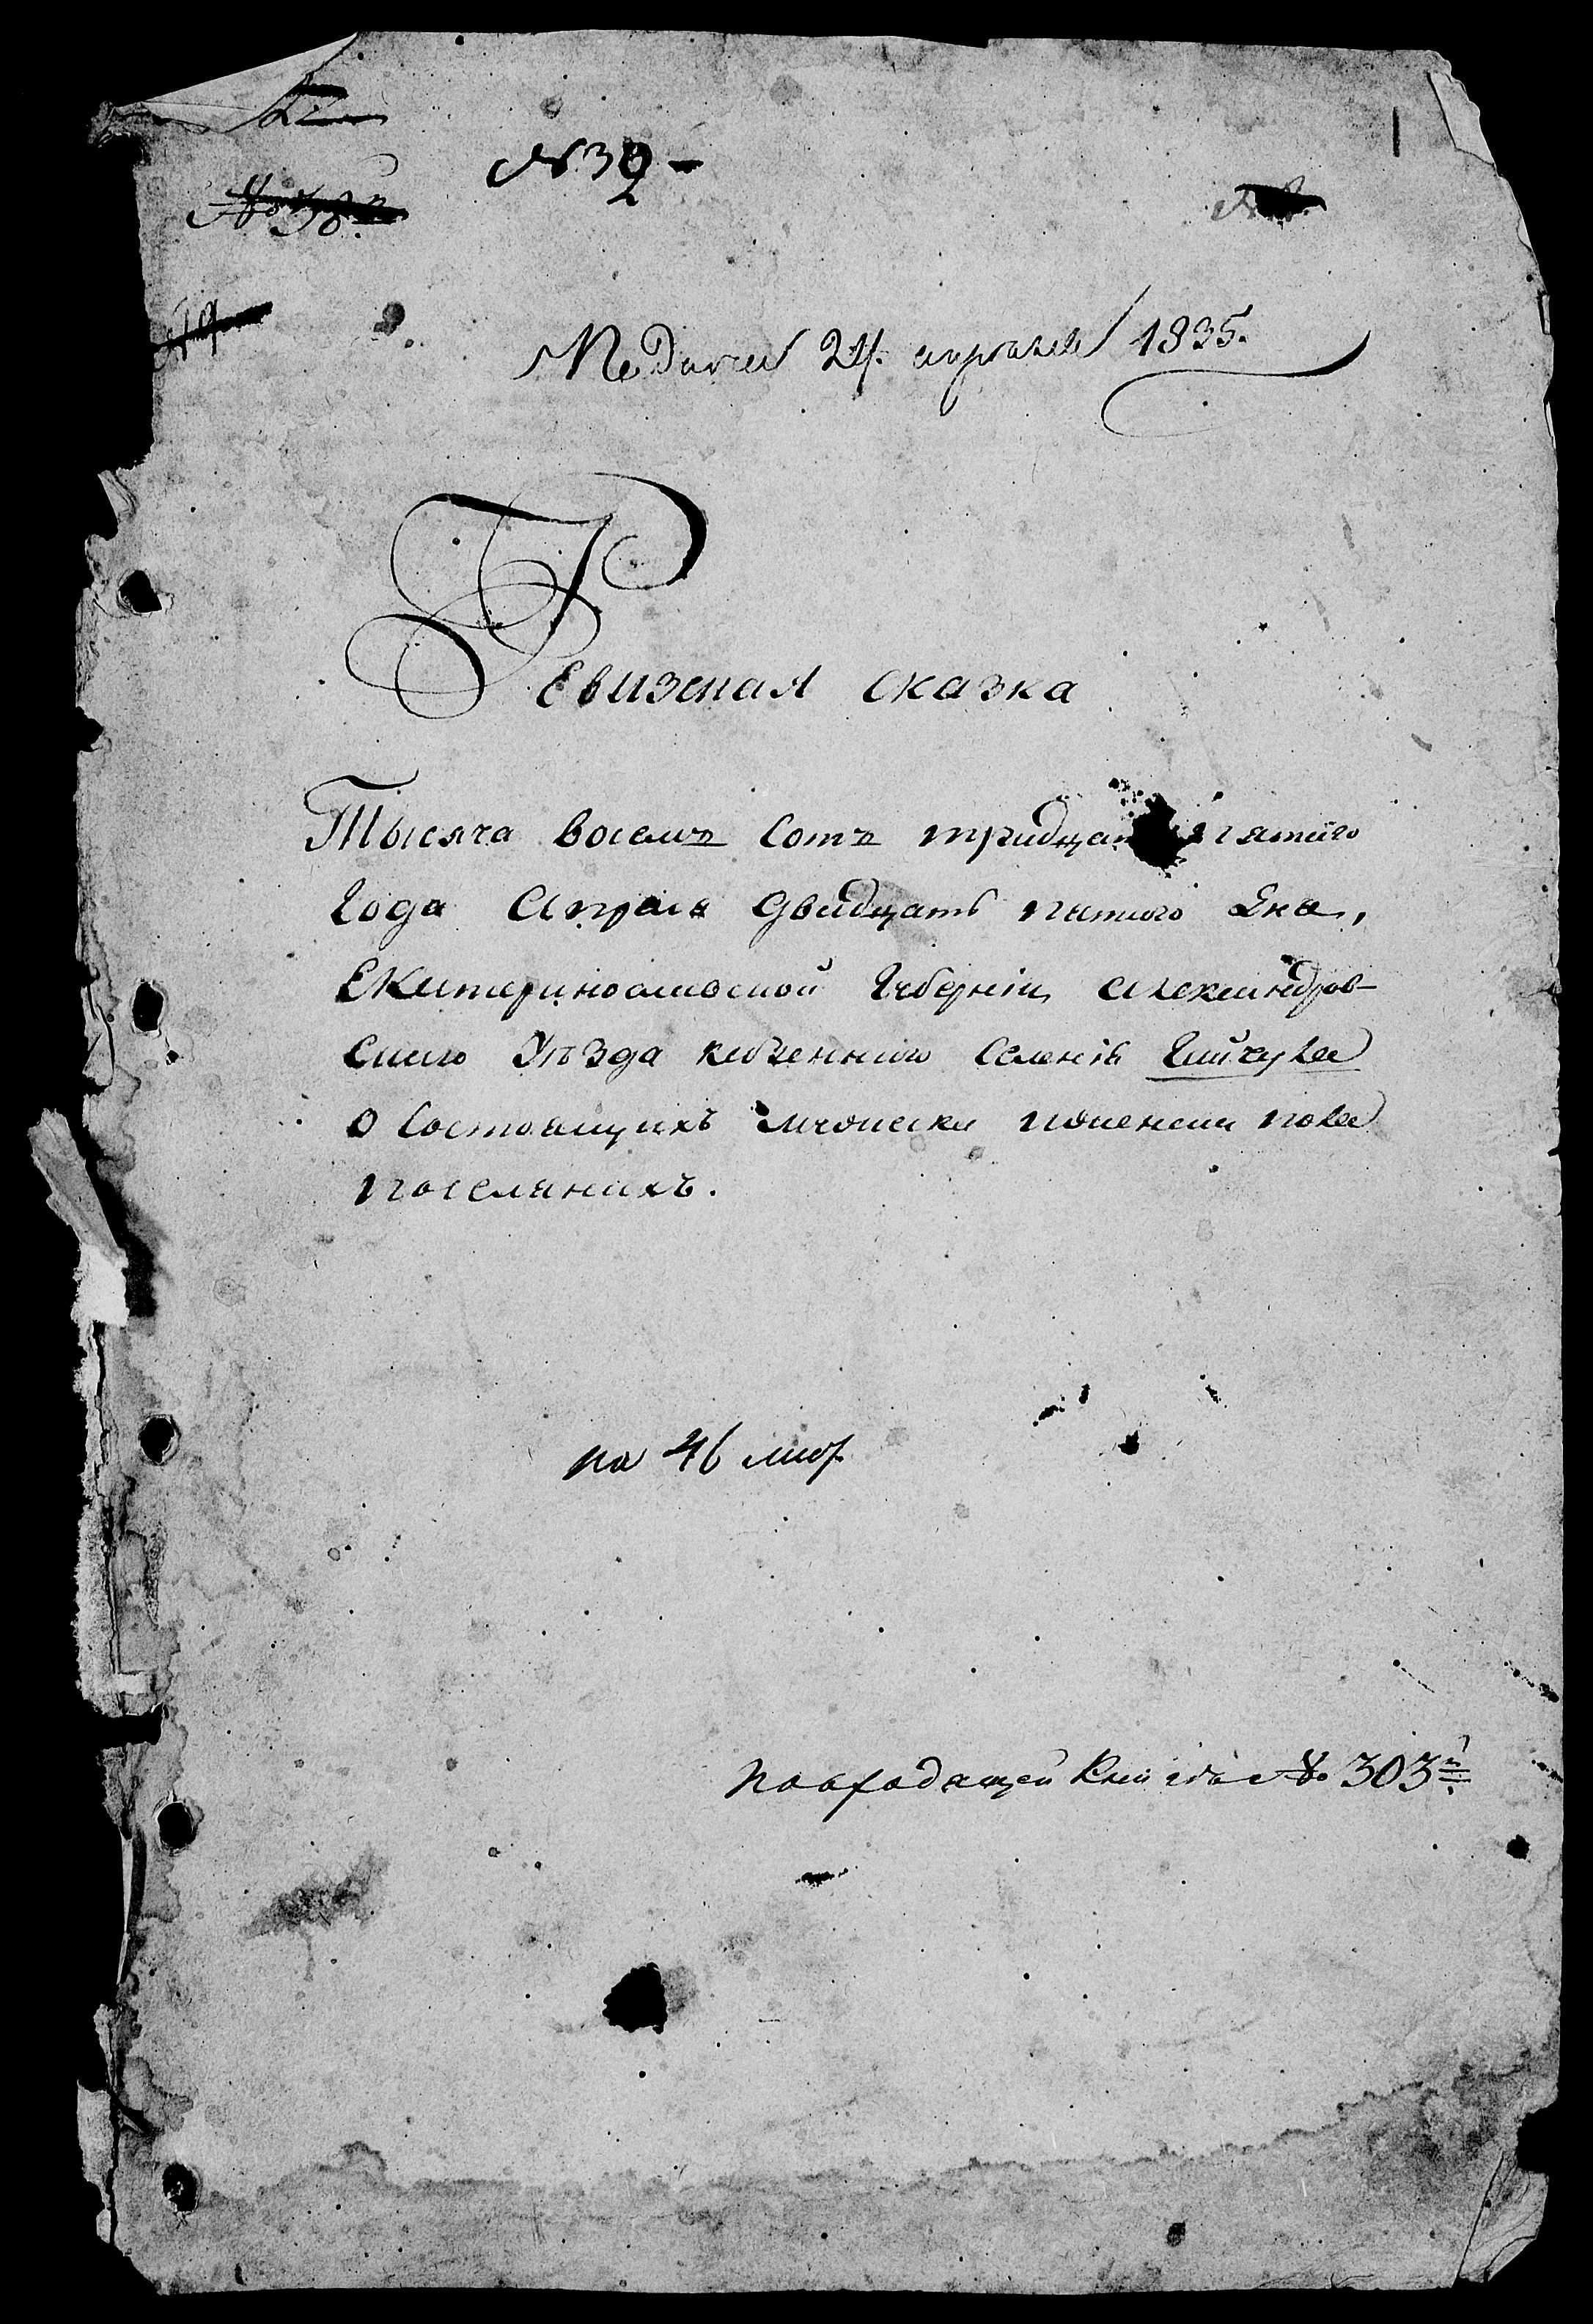 № 32
1
Подана 24. апреля 1835.
Ревизская сказка
Тысяча восемъ сотъ тридцать пятого
года Апреля двадцать пятого дня,
Екатеринославской губерніи, александров-
скаго уѣзда казенного селенія Гайчула
о состоящихъ мужеска и женска пола
поселянахъ.
на 46 лист.
по входящей книгѣ № 303й